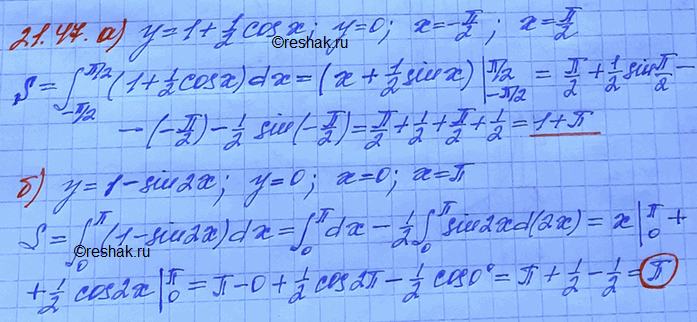 21.47. а) y=1+½cosx; y=0; x=-π/2; x=π/2
S=∫_{-π/2}^{π/2}(1+½cosx)dx=(x+½sinx)|_{-π/2}^{π/2}=π/2+½sinπ/2-
-(-π/2)-½sin(-π/2)=π/2+½+π/2+½=1+π
б) y=1-sin2x; y=0; x=0; x=π
S=∫_0^π(1-sin2x)dx=∫_0^πdx-½∫_0^πsin2xd(2x)=x|_0^π+
+½cos2x|_0^π=π-0+½cos2π-½cos0°=π+½-½=π
©Reshak.ru